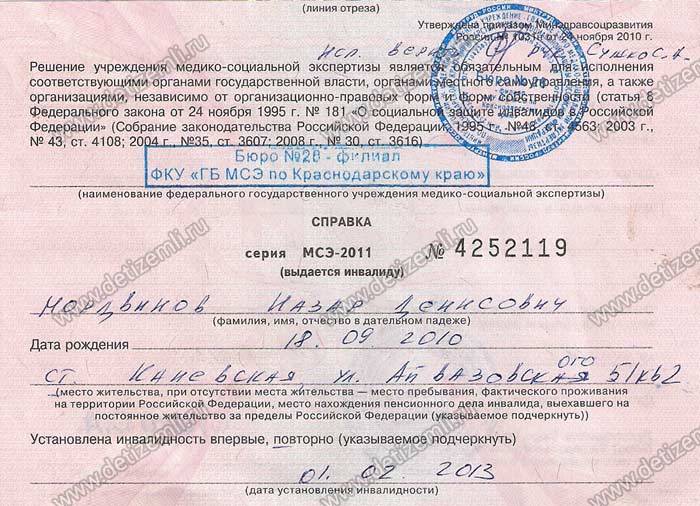 (линия отреза)
Утверждена приказом Минздравсоцразвития
России № 1031н от 24 ноября 2010 г.
Решение учреждения медико-социальной экспертизы является обязательным для исполнения
соответствующими органами государственной власти, органами местного самоуправления, а также
организациями, независимо от организационно-правовых форм и форм собственности (статья 8
Федерального закона от 24 ноября 1995 г. № 181 «О социальной защите инвалидов в Российской
Федерации» (Собрание законодательства Российской Федерации, 1995 г., № 48, ст. 4563; 2003 г.,
№ 43, ст. 4108; 2004 г., №35, ст. 3607; 2008 г., № 30, ст. 3616)
Бюро №28
Бюро №28 - филиал
ФКУ «ГБ МСЭ по Краснодарскому краю»
(наименование федерального государственного учреждения медико-социальной экспертизы)
СПРАВКА
серия МСЭ-2011 № 4252119
(выдается инвалиду)
Мордвинов Назар Денисович
(фамилия, имя, отчество в дательном падеже)
Дата рождения 18 09 2010
ст. Каневская, ул. Айвазовская ого 51/кв2
(место жительства, при отсутствии места жительства — место пребывания, фактического проживания
на территории Российской Федерации, место нахождения пенсионного дела инвалида, выехавшего на
постоянное жительство за пределы Российской Федерации (указываемое подчеркнуть))
Установлена инвалидность впервые, повторно (указываемое подчеркнуть)
01. 02. 2013
(дата установления инвалидности)
www.detizemli.ru